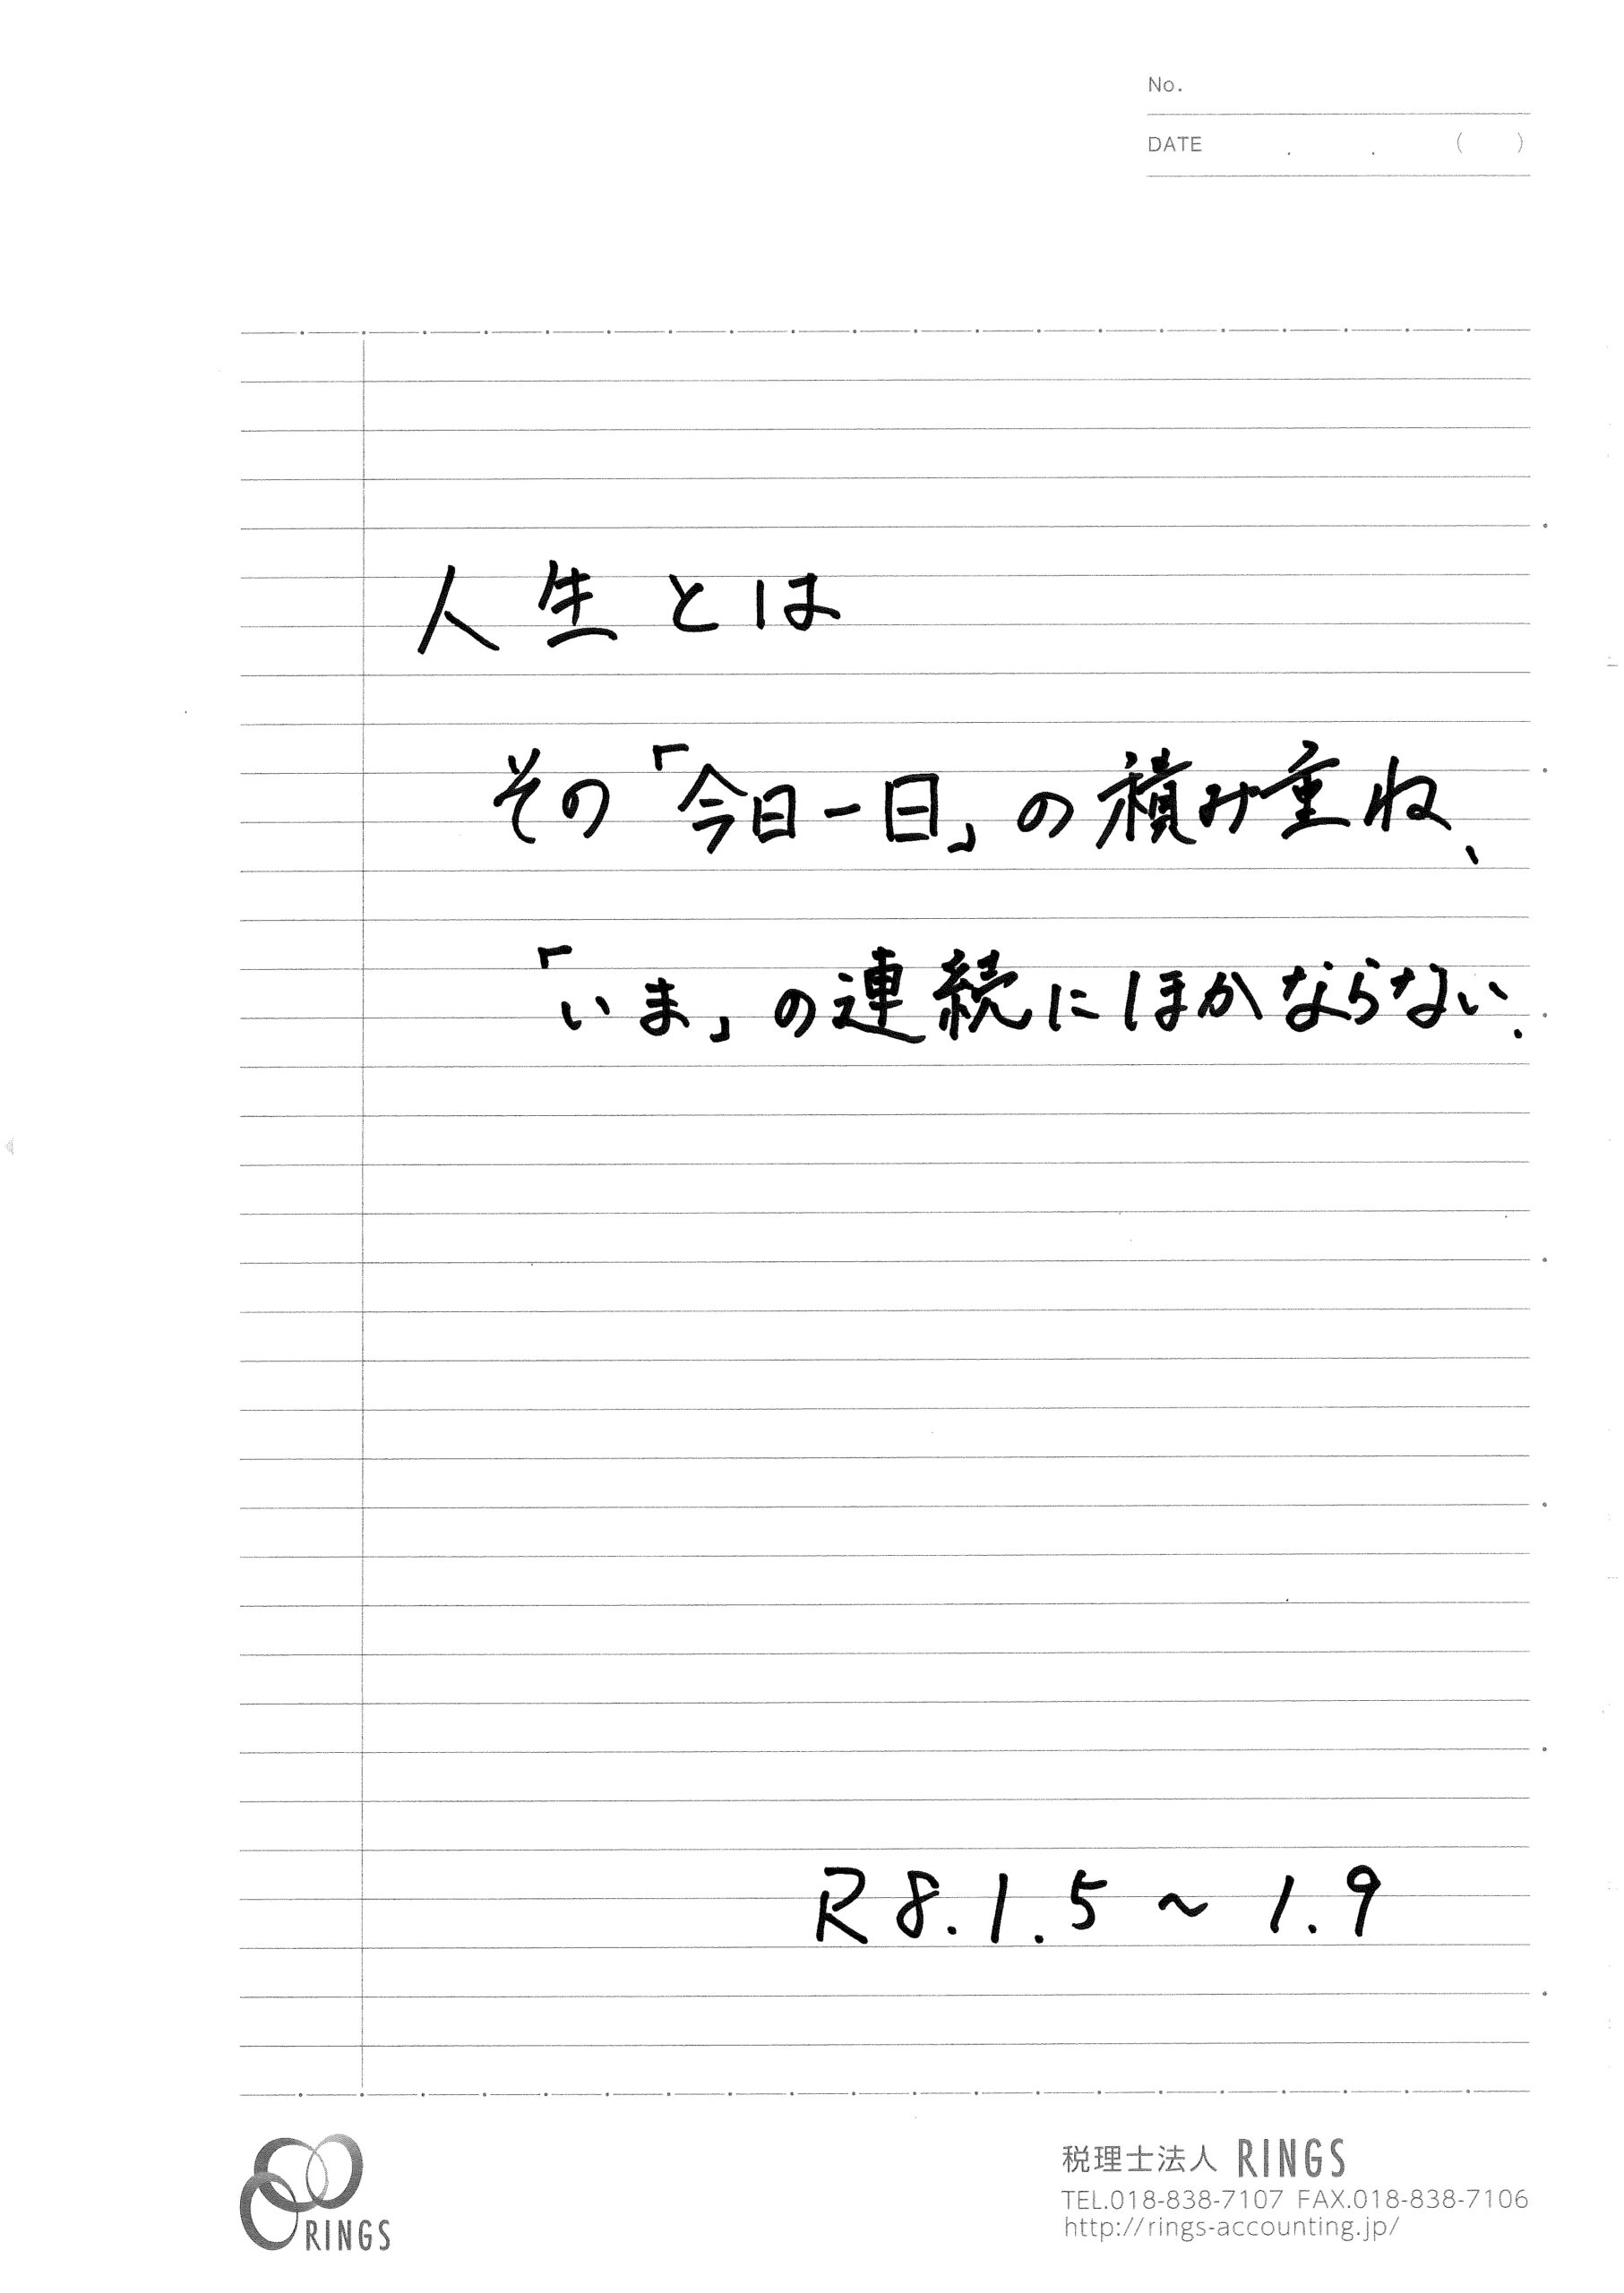 No.
DATE . . ( )
人生とは
その「今日一日」の積み重ね、
「いま」の連続にほかならない.
R8.1.5～1.9
RINGS
税理士法人 RINGS
TEL.018-838-7107 FAX.018-838-7106
http://rings-accounting.jp/